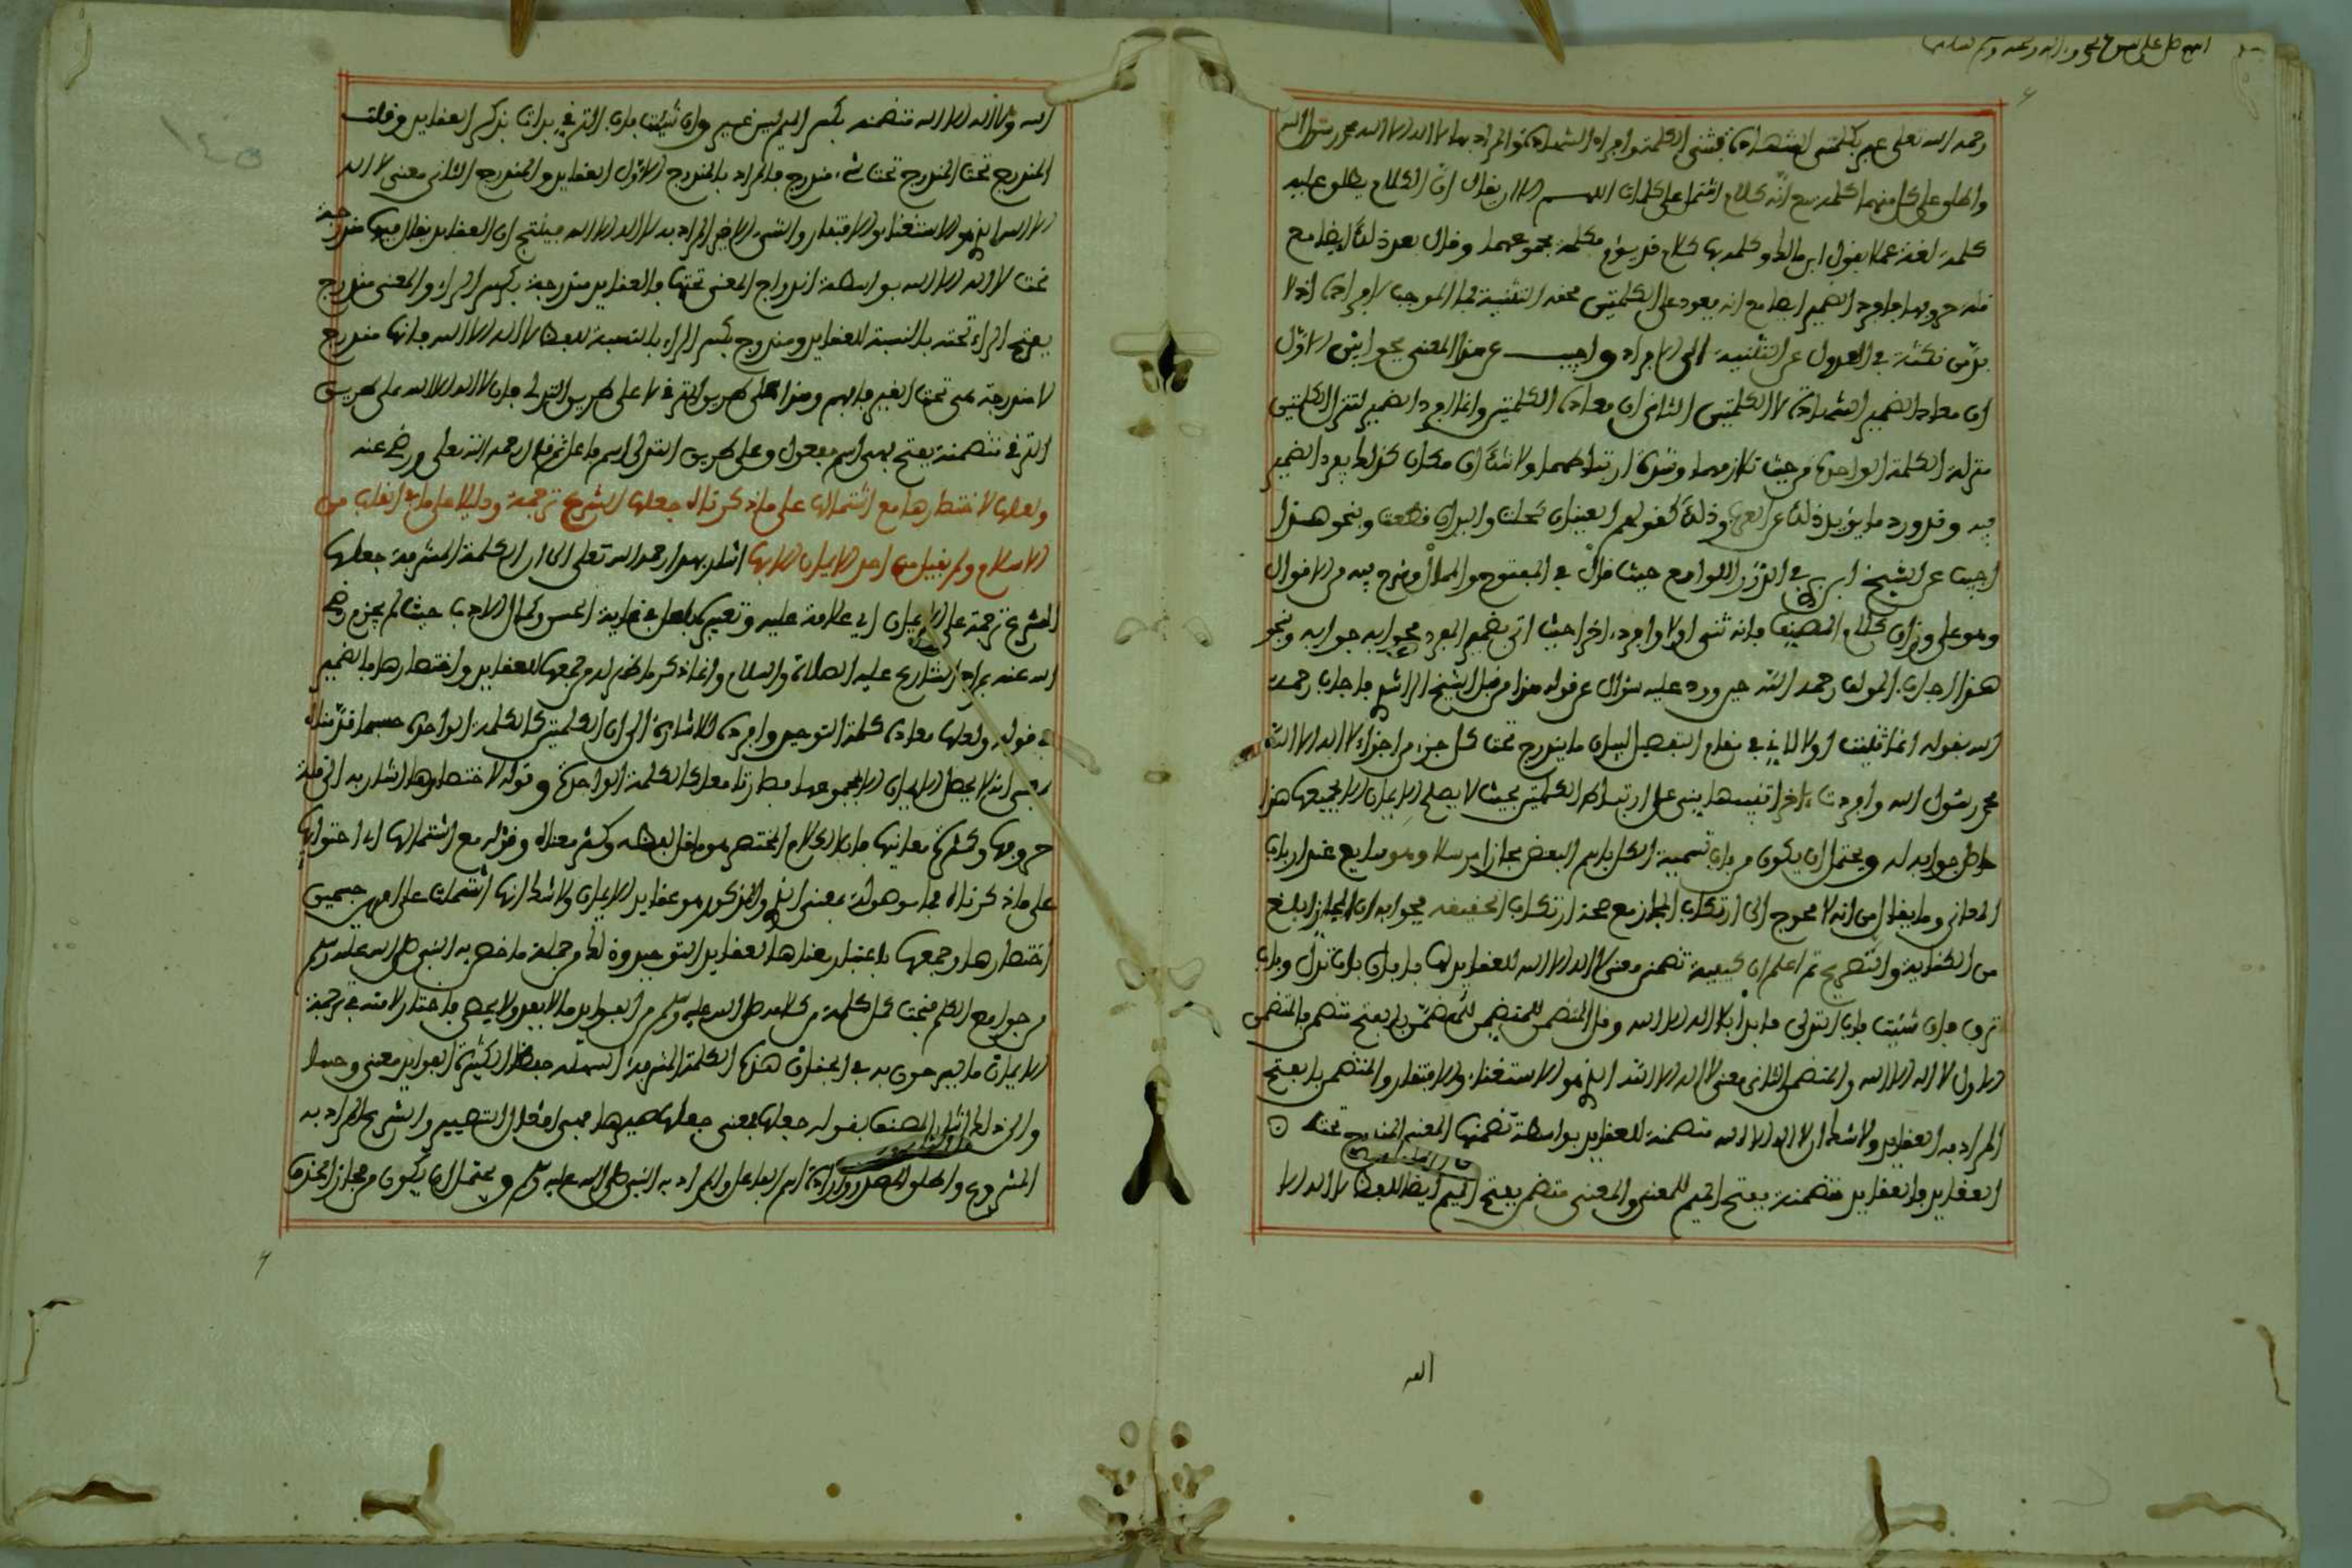 اللهم صل على سيدنا محمد وءاله وصحبه وسلم تسليما
رحمه الله تعلى عبر بكلمتى الشهادة فثنى الكلمة وافراد الشهادة والمراد بهما لا اله الا الله محمد رسول الله
واطلق على كل منهما كلمة مع انه كلام اشتمل على كلمات اللهم الا ان يقال ان الكلام يطلق عليه
كلمة لغة عملا بقول ابن مالك وكلمة بها كلام قد يؤم مكلمة مجموعهما وقال بعد ذلك ايضا مع
قلة حروبها بافرد الضمير ايضا مع انه يعود على الكلمتين محقه التثنية فما الموجب لافراده اذ لا
بد من نكتة في العدول عن التثنية الى الافراد واجيب عن هذا المعنى بجوابين الاول
ان معاد الضمير الشهادة لا الكلمتين الثاني ان معاده الكلمتين وانما افرد الضمير لتنزل الكلمتين
منزلة الكلمة الواحدة من حيث تلازمهما وشدة ارتباطهما ولا شك ان مكان كذلك يفرد الضمير
فيه وقد ورد ما يؤيد ذلك عن العرب وذلك كقولهم العينان كحلت واليدان قطعت وبنحو هذا
اجيب عن الشيخ ابن بري في الدرر اللوامع حيث قال في المفتوح والممال وضرح فيه من الاقوال
وهو على وزان كلام المصنف فانه ثنى اولا وافرد ءاخرا حيث اتى بضمير المفرد فجوابه جوابه وبنحو
هذا اجاب المولف رحمه الله حين ورد عليه سؤال عن قوله هذا من قبل الشيخ الراشدي فاجاب رحمه
الله بقوله انما ثنيت اولا لاني في مقام التفصيل لبيان ما يندرج تحت كل جزء من اجزاء لا اله الا الله
محمد رسول الله وافردت ءاخرا تنبيها بينى على ارتباط الكلمتين بحيث لا يصح الايمان الا بجميعها هذا
حاصل جوابه له ويحتمل ان يكون من باب تسمية الكل باسم البعض مجازا مرسلا وهو سايغ عند ارباب
المعاني وما يقال من انه لا محوج الى ارتكاب المجاز مع صحة ارتكاب الحقيقة فجوابه ان المجاز ابلغ
من الكناية والتصريح ثم اعلم ان كيفية تضمن معنى لا اله الا الله للعقايد لها بابان باب تدل وباب
ترق فان شئت باب التدلى فابدأ بلا اله الا الله وقل المتضمن للمتضمن للمتضمن بالفتح متضمن فالمتضمن
الاول لا اله الا الله والمتضمن الثاني معنى لا اله الا الله الذي هو الاستغناء والافتقار والمتضمن بالفتح
المراد به العقايد ولا شك ان لا اله الا الله متضمنة للعقايد بواسطة تضمنها المعنى المندرج تحته
العقايد فالعقايد متضمنة بفتح الميم للمعنى والمعنى متضمن بفتح الميم ايضا للفظ لا اله الا
الله
الله ولا اله الا الله متضمنة بكسر الميم ليس غير وان شئت باب الترقي بدات بذكر العقايد وقلت
المندرج تحت المندرج تحت شيء مندرج فالمراد بالمندرج الاول العقايد والمندرج الثاني معنى لا اله
الا الله الذي هو الاستغناء والافتقار والشيء الاخير المراد به لا اله الا الله فينتج ان العقايد يقال فيها مندرجة
تحت لا اله الا الله بواسطة اندراج المعنى تحتها فالعقايد مندرجة بكسر الراء والمعنى مندرج
بفتح الراء تحته بالنسبة للعقايد ومندرج بكسر الراء بالنسبة للفظ لا اله الا الله فانها مندرج
لا مندرجة هى تحت الغير فافهم وهذا على طريق الترقي لا على طريق التدلي فان لا اله الا الله على طريق
الترقي متضمنة بفتح فهى اسم مفعول وعلى طريق التدلى اسم فاعل ثم قال رحمه الله تعلى ورضي عنه
ولعلها لاختصارها مع اشتمالها على ما ذكرناه جعلها الشرع ترجمة ودليلا على ما في القلب من
الاسلام ولم يقبل من احد الايمان الا بها اشار بهذا رحمه الله تعلى الى ان الكلمة المشرفة جعلها
الشرع ترجمة على الايمان اي علامة عليه وتعبيره بلعل في غاية الحسن وكمال الادب حيث لم يجزم رضي
الله عنه بمراد الشارع عليه الصلاة والسلام وانما ذكر ما ظهر له من جمعها للعقايد واختصارها فالضمير
في قوله ولعلها معاده كلمة التوحيد وافرده للاشارة الى ان الكلمتين كالكلمة الواحدة حسبما قدمناه
بمعنى انه لا يحصل الايمان الا بمجموعهما فصارتا معا كالكلمة الواحدة وقوله لاختصارها اشار به الى قلة
حروفها وكثرة معانيها فان الكلام المختصر هو ما قل لفظه وكثر معناه وقوله مع اشتمالها اي احتوايها
على ما ذكرناه فما موصولة بمعنى الذي والمذكور هو عقايد الايمان ولا شك انها اشتملت على امرين جسيمين
اختصارها وجمعها باعتبار معناها لعقايد التوحيد وذلك من جملة ما خص به النبي صلى الله عليه وسلم
من جوامع الكلم فتحت كل كلمة من كلامه صلى الله عليه وسلم من الفوايد ما لا يعد ولا يحصى فاختار لامته في ترجمة
الايمان ما يرجون به في الجنان هذه الكلمة المشرفة السهلة حفظا الكثيرة الفوايد معنى وحسا
والى ذلك اشار المصنف بقوله جعلها بمعنى جعلها صيرها فهى من افعال التصيير والشرع المراد به
المشروع واطلق المصدر واراد اسم الفاعل والمراد به النبي صلى الله عليه وسلم ويحتمل ان يكون من مجاز الحذف